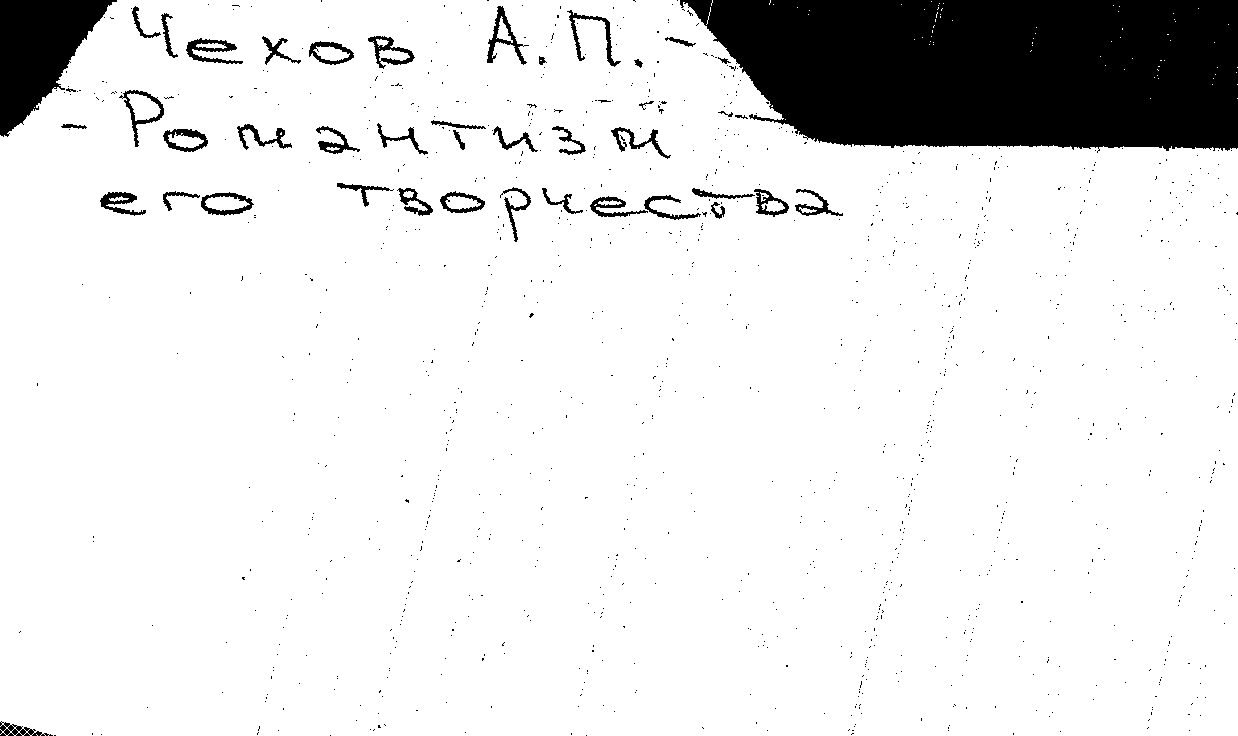 Чехов А.П. -
- Романтизм
его творчества